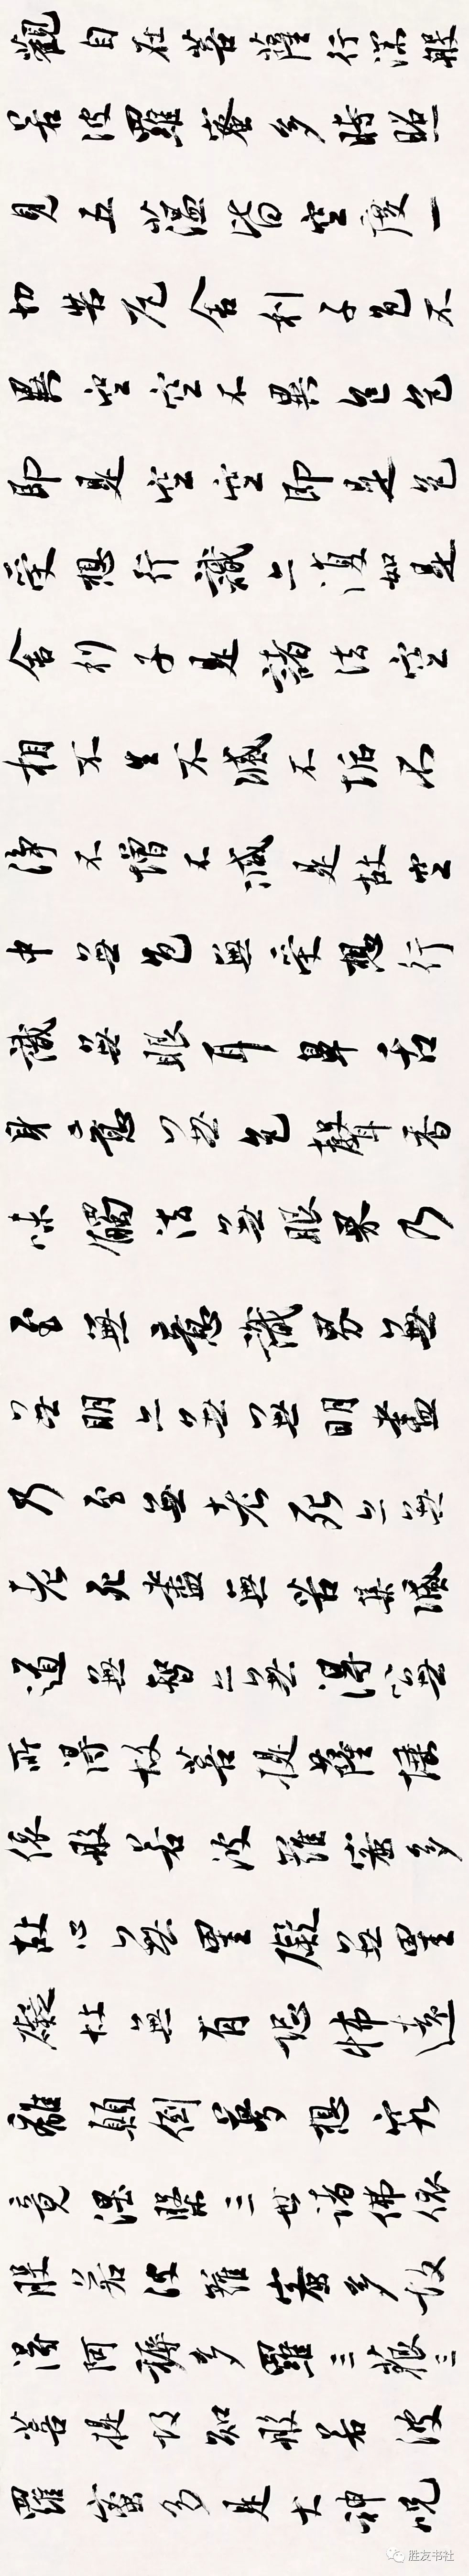 觀自在菩薩行深般
若波羅蜜多時照
見五蘊皆空度一
切苦厄舍利子色不
異空空不異色色
即是空空即是色
受想行識亦復如是
舍利子是諸法空
相不生不滅不垢不
淨不增不減是故空
中無色無受想行
識無眼耳鼻舌
身意無色聲香
味觸法無眼界乃
至無意識界無
無明亦無無明盡
乃至無老死亦無
老死盡無苦集滅
道無智亦無得以無
所得故菩提薩埵
依般若波羅蜜多
故心無罣礙無罣
礙故無有恐怖遠
離顛倒夢想究
竟涅槃三世諸佛依
般若波羅蜜多故
得阿耨多羅三藐三
菩提故知般若波
羅蜜多是大神咒
胜友书社